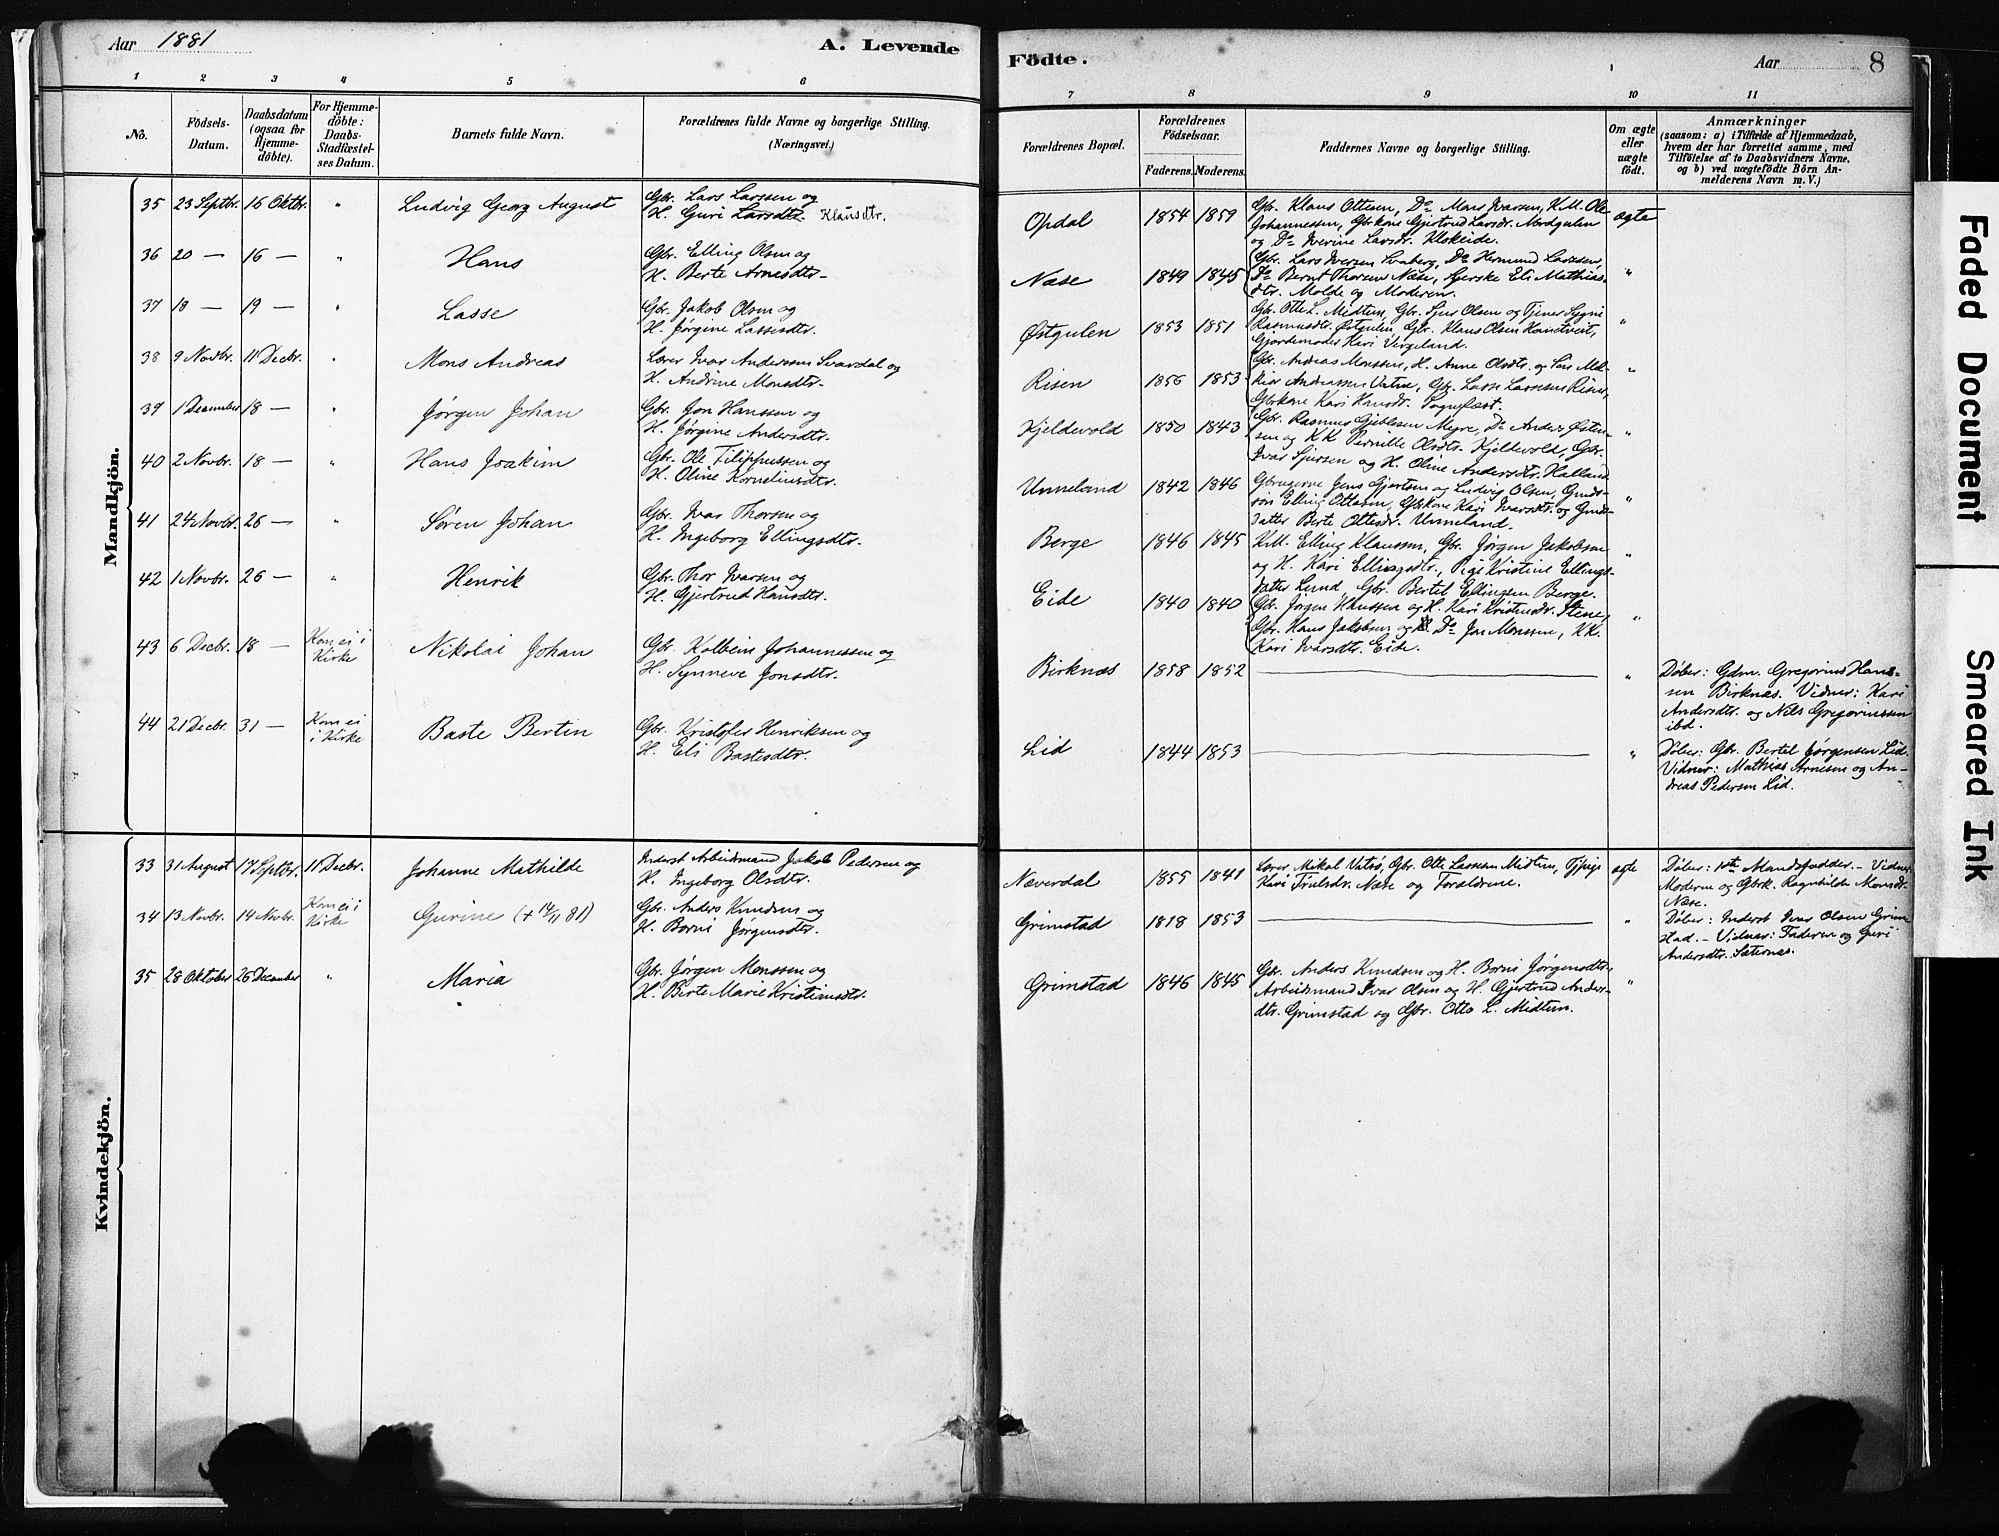 Aar 1881
A. Levende
Födte.
Aar
8
1 2 3 4 5 6
7 8 9 10 11
No.
Födsels-
Datum.
Daabsdatum
(ogsaa for
Hjemme-
döbte).
For Hjemme-
döbte:
Daabs-
Stadfæstel-
ses Datum.
Barnets fulde Navn.
Forældrenes fulde Navne og borgerlige Stilling.
(Næringsvei.)
Forældrenes Bopæl.
Forældrenes
Födselsaar.
Faderens. Moderens.
Faddernes Navne og borgerlige Stilling.
Om ægte
eller
uægte
födt.
Anmærkninger
(saasom: a) i Tilfælde af Hjemmedaab,
hvem der har forrettet samme, med
Tilföielse af to Daabsvidners Navne.
og b) ved uægtefödte Börn An-
melderens Navn m. V.)
Mandkjön.
35 23 Septbr. 16 Oktbr. " Ludvig Georg August
Gbr. Lars Larssen og
H. Guri Larsdtr. Klausdtr.
Opdal 1854 1859
Gbr. Klaus Ottesen, Do Mons Ivarsen, K.M. Ole
Johannessen, Gbrkone Gjertrud Larsdr. Nordgulen
og Do Iverine Larsdr. Kleiveide.
ægte
36 20 — 16 — " Hans
Gbr. Elling Olsen og
H. Berte Arnesdtr.
Næse 1849 1845
Gbr. Lars Iversen Svaberg, Do Hermund Lassesen,
Do Bernt Thorsen Næse, Gjerske Eli Mathias-
dtr. Molde og Moderen.
"
37 18 — 19 — " Lasse
Gbr. Jakob Olsen og
H. Jørgine Lassesdtr.
Østgulen 1853 1851
Gbr. Otte L. Midtun, Gbr. Sjur Olsen og Tjener Sygni
Rasmusdtr. Østgulen, Gbr. Klaus Olsen Hanetveit,
Gjordemoder Kari Virgeland.
"
38 9 Novbr. 11 Decbr. " Mons Andreas
Lærer Ivar Anderssen Svardal og
H. Andrine Monsdtr.
Risen 1856 1853
Gbr. Andreas Monssen, H. Anne Olsdtr. og Søn Mel-
kior Andreassen Vatne, Gbr. Lasse Lassesen Risen,
Gbrkone Kari Hansdr. Sognefæst.
"
39 1 December 18 — " Jørgen Johan
Gbr. Jon Hanssen og
H. Jørgine Andersdtr.
Kjeldevold 1850 1843
Gbr. Rasmus Gjeblesen Myre, Do Anders Østen-
sen og KK Pernille Olsdtr. Kjeldevold, Gbr.
Ivar Sjursen og H. Oline Andersdtr. Halland
"
40 2 Novbr. 18 — " Hans Joakim
Gbr. Ole Filippussen og
H. Oline Korneliusdtr.
Unneland 1842 1846
Gbrugerne Jens Gjertsen og Ludvig Olsen, Gmds-
søn Elling Ottesen, Gbrkone Kari Ivarsdtr. og Gmds-
datter Berte Ottesdr. Unneland.
"
41 24 Novbr. 26 — " Søren Johan
Gbr. Ivar Thorsen og
H. Ingeborg Ellingsdtr.
Berge 1846 1845
K.M. Elling Klaussen, Gbr. Jørgen Jakobsen
og H. Kari Ellingsdtr., Pige Kristine Ellings-
datter Lund, Gbr. Bertel Ellingsen Berge.
"
42 1 Novbr. 26 — " Henrik
Gbr. Thor Ivarsen og
H. Gjertrud Hansdtr.
Eide 1840 1840
Gbr. Jørgen Hanssen og H. Kari Kristensdr. Stene,
Gbr. Hans Jakobsen og Do Jon Monssen, KK.
Kari Ivarsdtr. Eide.
"
43 6 Decbr. 18 — Kom ei i
Kirke
Nikolai Johan
Gbr. Kolbein Johannessen og
H. Synneve Jonsdtr.
Birknæs 1858 1852 "
Døber: Gdm. Gregorius Hans-
sen Birknæs. Vidner: Kari
Andersdtr. og Nils Gregoriussen
ibd.
44 21 Decbr. 31 — Kom ei
i Kirke
Baste Bertin
Gbr. Kristofer Henriksen og
H. Eli Bastesdtr.
Lid 1844 1853 "
Døber: Gbr. Bertel Jørgensen Lid.
Vidner: Mathias Arnesen og An-
dreas Pedersen Lid.
Kvindekjön.
33 31 August 17 Septbr. 11 Decbr. Johanne Mathilde
Inderst Arbeidsmand Jakob Pedersen og
H. Ingeborg Olsdtr.
Næverdal 1855 1841
Lærer Mikal Vatsø, Gbr. Otte Lassesen Midtun, Tjpige
Kari Trulsdr. Næse og Forældrene.
ægte
Døber: 1ste Mandsfadder. - Vidner
Moderen og Gbrk. Ragnhilde Monsdr.
Næse.
34 13 Novbr. 14 Novbr. Kom ei i
Kirke
Gurine (+ 14/11 81)
Gbr. Anders Knudsen og
H. Borni Jørgensdtr.
Grimstad 1818 1853 "
Døber: Inderst Ivar Olsen Grim-
stad. - Vidner: Faderen og Guri
Andersdtr. Sæternæs.
35 28 Oktober 26 December " Maria
Gbr. Jørgen Monssen og
H. Berte Marie Kristensdtr.
Grimstad 1846 1845
Gbr. Anders Knudsen og H. Borni Jørgensdtr.,
Arbeidsmand Ivar Olsen og H. Gjertrud Anders-
dtr. Grimstad og Gbr. Otto L. Midtun.
"
Faded Document
Smeared Ink